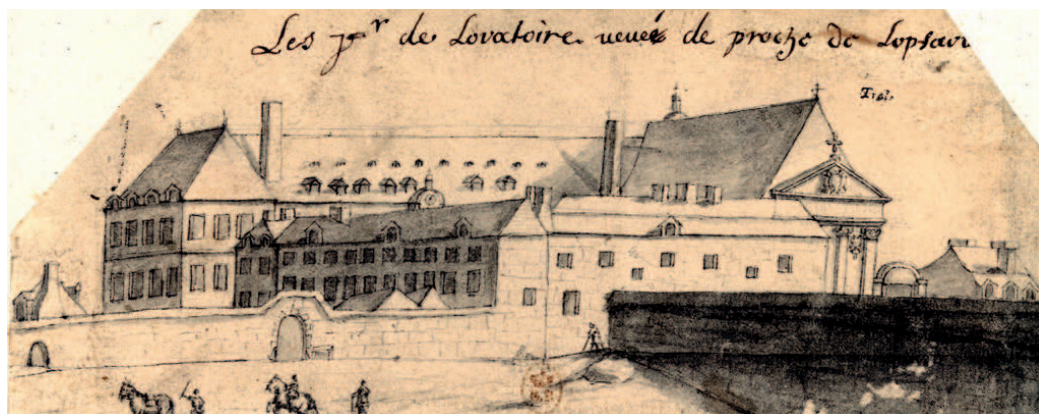 Les pr de Lovatoire veuee de proche de Lopsav